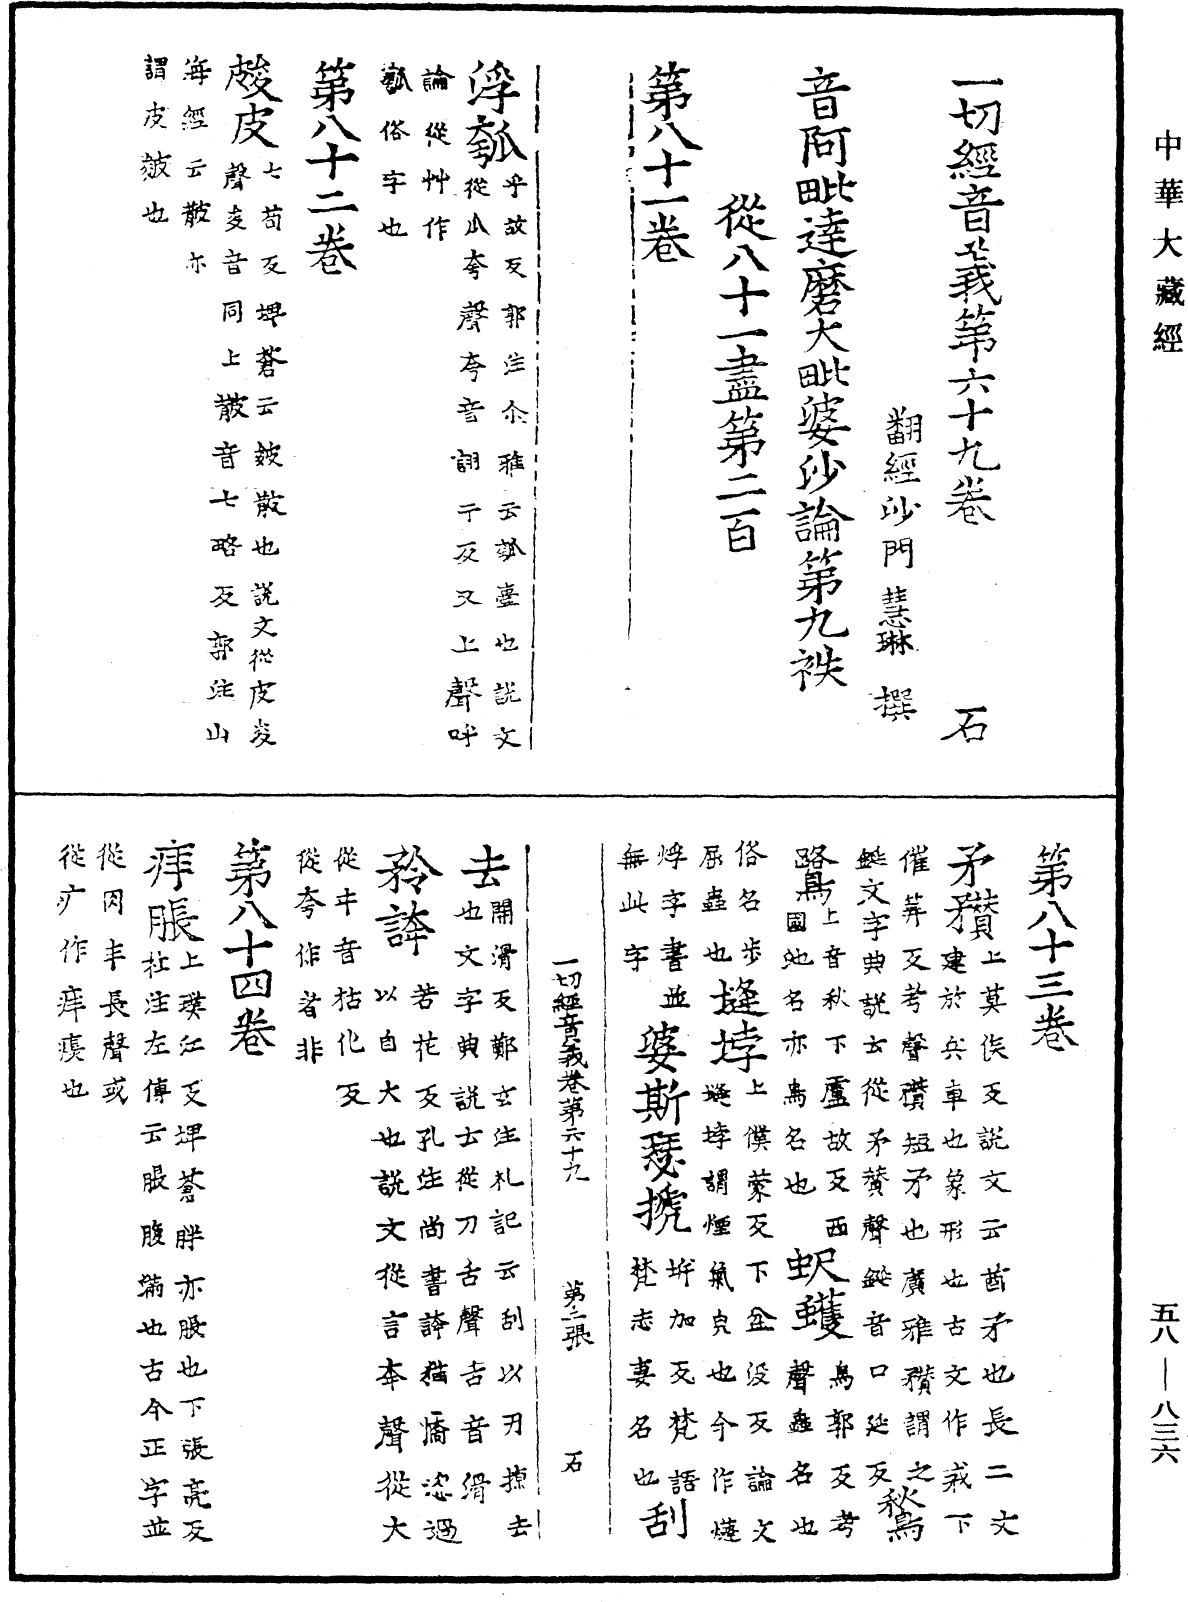 中華大藏經
一切經音義第六十九卷 石
翻經沙門慧琳 撰
音阿毗達磨大毗婆沙論第九袟
從八十一盡第二百
第八十一卷
浮瓠
乎故反郭注尒雅云瓠壼也說文
從瓜夸聲夸音詡于反又上聲呼
論從艸作
瓠俗字也
第八十二卷
皴皮
七荀反埤蒼云皴散也說文從皮夋
聲夋音同上皵音七略反郭注山
海經云皵亦
謂皮皴也
第八十三卷
矛矟
上莫侯反說文云酋矛也長二丈
建於兵車也象形也古文作𢦧下
催筭反考聲穳短矛也廣雅穳謂之
鋋文字典說云從矛贊聲鋋音口延反
鶖鷺
上音秋下盧故反西
國地名亦鳥名也
蚇蠖
烏郭反考
聲蟲名也
俗名步
屈蟲也
㷯㶿
上僕蒙反下盆沒反論文
㷯㶿謂煙氣皃也今作熢
焞字書並
無此字
婆斯瑟搋
㧗加反梵語
梵志妻名也
刮去
開滑反鄭玄注札記云刮以刃㨆去
也文字典說士從刀舌聲舌音滑
矜誇
苦花反孔注尚書誇猶憍恣過
以自大也說文從言夸聲從大
從𠦑音枯化反
從夸作者非
第八十四卷
痽脹
上璞江反埤蒼胖亦脹也下張亮反
杜注左傳云脹腹滿也古今正字並
從肉丰長聲或
從疒作痽瘼也
一切經音義卷第六十九 第二張 石
五八—八三六